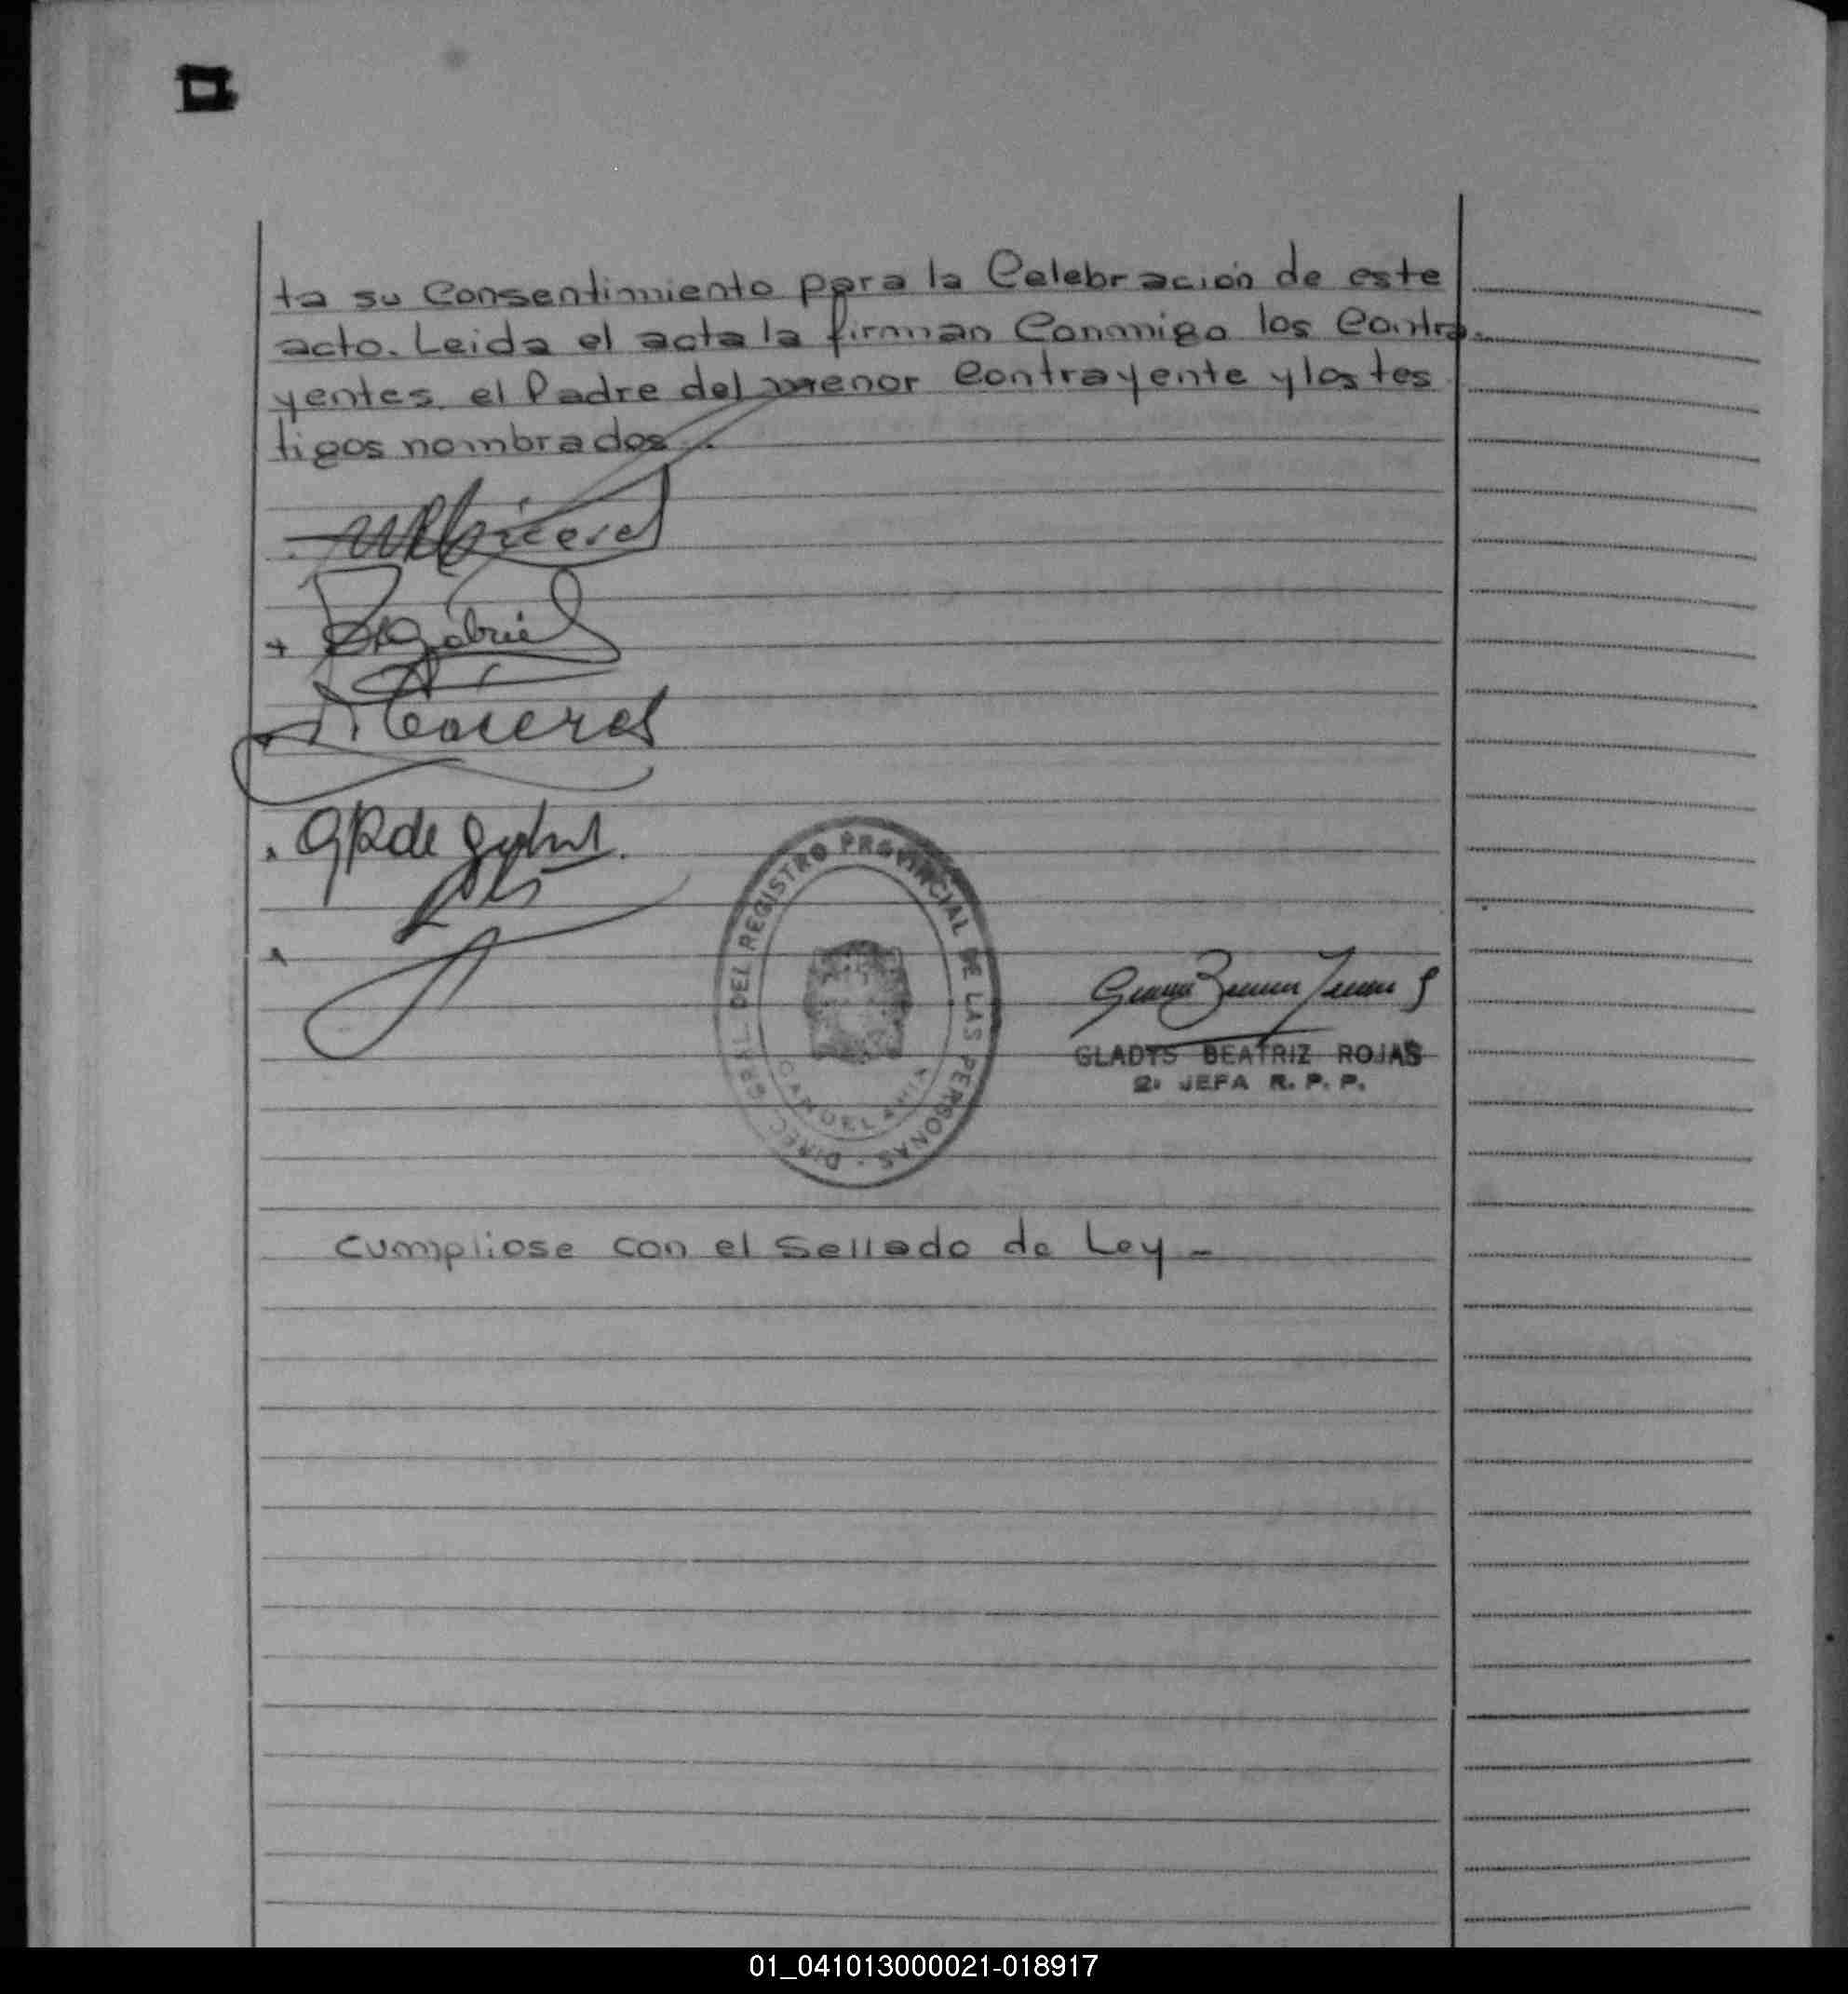 ta su Consentimiento para la Celebración de este
acto. Leida el acta la firman Conmigo los Contra-
yentes, el Padre del menor Contrayente y los tes
tigos nombrados.
Gabriel
Caceres
DIREC. GRAL. DEL REGISTRO PROVINCIAL DE LAS PERSONAS
CANDELARIA
GLADYS BEATRIZ ROJAS
2ª JEFA R. P. P.
Cumpliose con el Sellado de Ley -
01_041013000021-018917